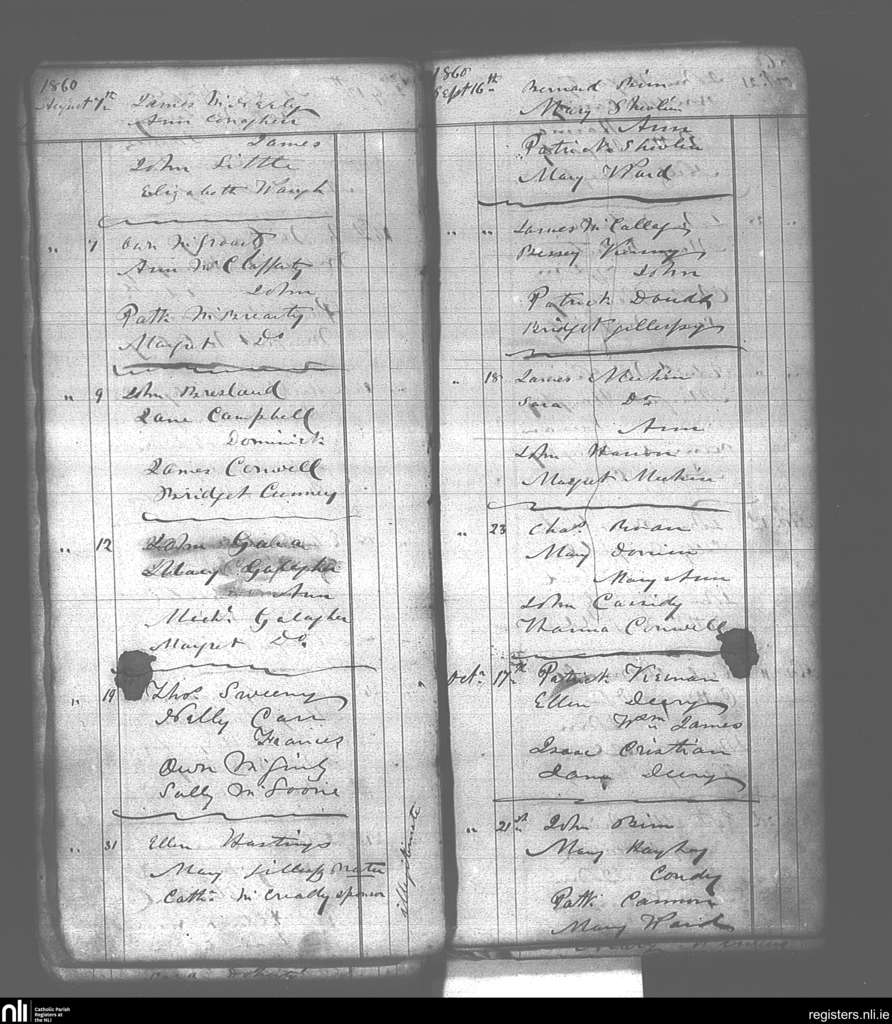 1860
August 7th James McNerly
Ann Conaghen
James
John Little
Elizabeth Waugh
" 7 Own McGroarty
Ann McClafferty
John
Patk McBrearty
Margret Do
" 9 John Bresland
Jane Campbell
Dominick
James Conwell
Bridget Cunney
" 12 John
Mary Gallagher
Ann
Michl Galagher
Margret Do
" 19 Thos Sweeny
Nelly Carr
Frances
Own McGinty
Sally McGoone
" 31 Ellen Hastings
Mary Gillesp Mater
Cathn McCreally sponsor
illegitimate
1860
Sept 16th Bernard Birn
Mary Shovlin
Ann
Patrick Shovlin
Mary Ward
" " James McCallog
Bessey Kenny
John
Patrick
Bridget Gillespey
" 18 James Meehin
Sara Do
Ann
John Hanon
Margret Meehin
" 23 Chas Roan
Mary
Mary Ann
John Cassidy
Hanna Conwell
Octr 17th Patrick Kernan
Ellen Deery
Wm James
Isaac Cristian
Jane Deery
" 21st John Birn
Mary Haughey
Condy
Patk Cannon
Mary Ward
nli
Catholic Parish
Registers at
the NLI
registers.nli.ie